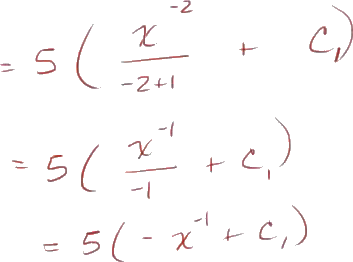 = 5 ( x^{-2} / -2+1 + C₁)
= 5 ( x^{-1} / -1 + C₁)
= 5 ( - x^{-1} + C₁)